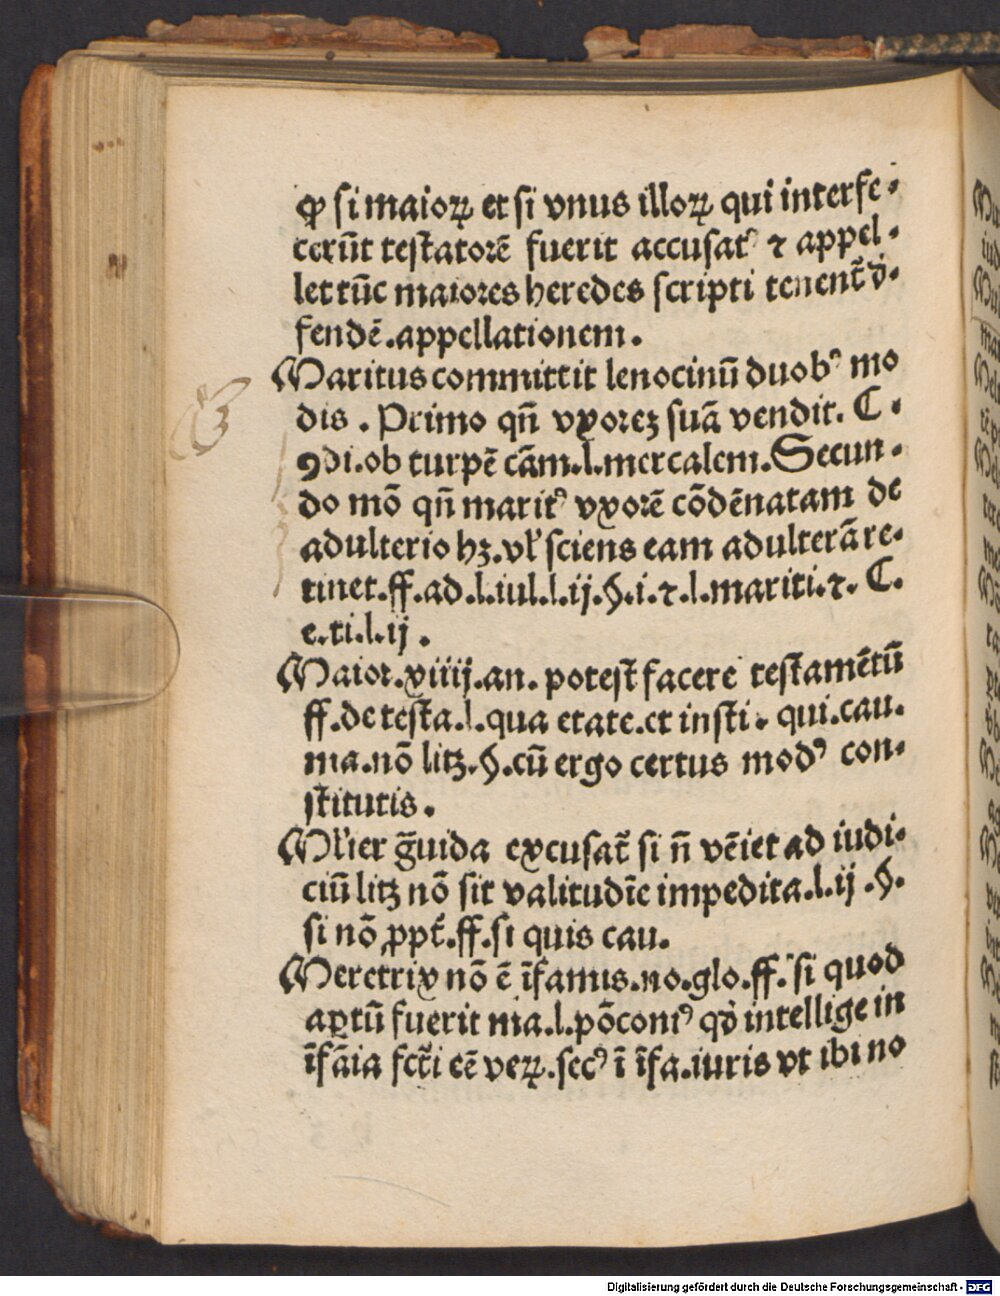 ꝙ si maioꝝ et si vnus illoꝝ qui interfe⸗
cerūt testatorē fuerit accusatꝰ ⁊ appel⸗
let tūc maiores heredes scripti tenent̃ d̾⸗
fendē.appellationem.
Maritus committit lenocinū duobꝰ mo
dis. Primo qn̄ vxorez suā vendit. C.
ꝯdi.ob turpē cām.l.mercalem.Secun⸗
do mō qn̄ maritꝰ vxorē cōdēnatam de
adulterio hꝫ.vl̕ sciens eam adulterā re⸗
tinet.ff.ad.l.iul.l.ij.§.i.⁊.l.mariti.⁊. C.
e.ti.l.ij.
Maior.xiiij.an. potest facere testamētū
ff.de testa.l.qua etate.et insti. qui.cau.
ma.nō litꝫ.§.cū ergo certus modꝰ con⸗
stitutis.
Ml̕ier g̃uida excusat̃ si n̄ vēiet ad iudi⸗
ciū litꝫ nō sit valitudīe impedita.l.ij.§.
si nō ꝓpt̃.ff.si quis cau.
Meretrix nō ē īfamis.no.glo.ff.si quod
aꝑtū fuerit ma.l.ꝓconſꝰ qd̾ intellige in
īfāia fcti eē veꝝ.secꝰ ī īfa.iuris vt ibi no
Digitalisierung gefördert durch die Deutsche Forschungsgemeinschaft - DFG